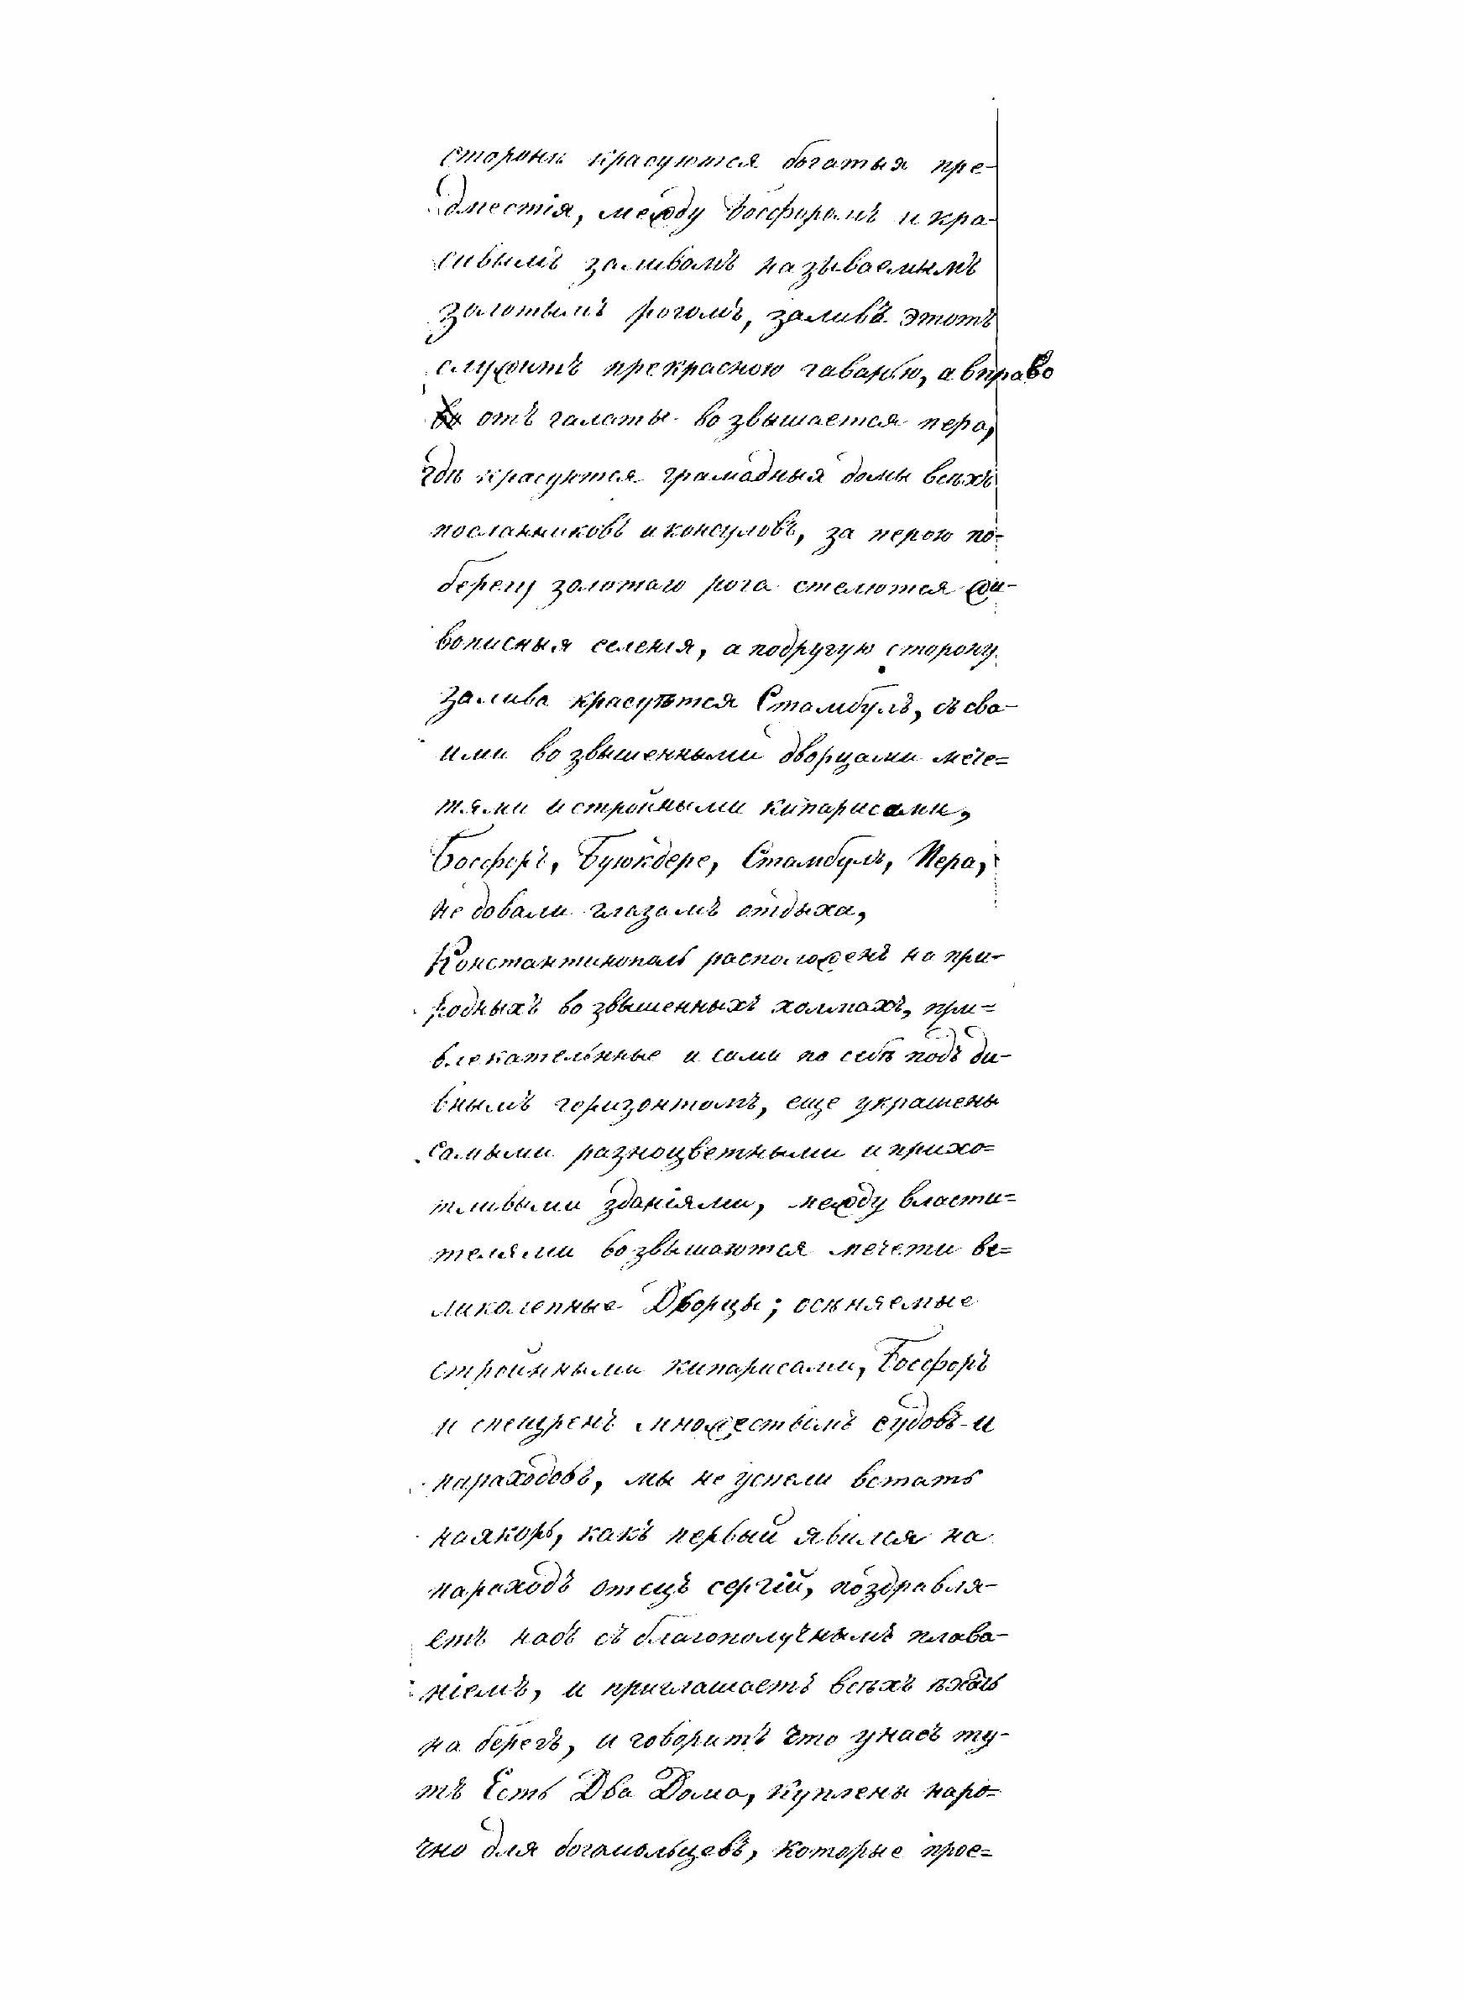 сторонѣ красуются богатыя пре-
дместія, между Босфоромъ и кра-
сивымъ заливомъ называемымъ
золотымъ рогомъ, заливъ этотъ
служитъ прекрасною гаванью, а вправо
отъ галаты возвышается пера,
гдѣ красуются грамадныя домы всѣхъ
посланниковъ и консуловъ, за перою по-
берегу золотаго рога стелются жи-
вописныя селенія, а подругую сторону
залива красуется Стамбулъ, съ сво-
ими возвышенными дворцами мече=
тями и стройными кипарисами,
Босфоръ, Буюкдере, Стамбулъ, Пера,
не довали глазамъ отдыха,
Константинополь расположенъ на при-
родныхъ возвышенныхъ холмахъ, при=
влекательнные и сами по себѣ подъ ди-
внымъ горизонтомъ, еще украшены
самыми разноцветными и прихо=
тливыми зданіями, между власти=
телями возвышаются мечети ве=
ликолепные Дворцы; осѣняемые
стройнными кипарисами, Босфоръ
и спещренъ множествымъ судовъ и
параходовъ, мы не успели встать
наякорь, какъ первый явился на
параходъ отецъ сергій, поздравля-
етъ насъ съ благополучнымъ плова-
ніемъ, и приглашаетъ всѣхъ ѣхать
на берегъ, и говоритъ что унасъ ту-
тъ Есть Два Дома, куплены наро=
чно для богомольцевъ, которые прое=